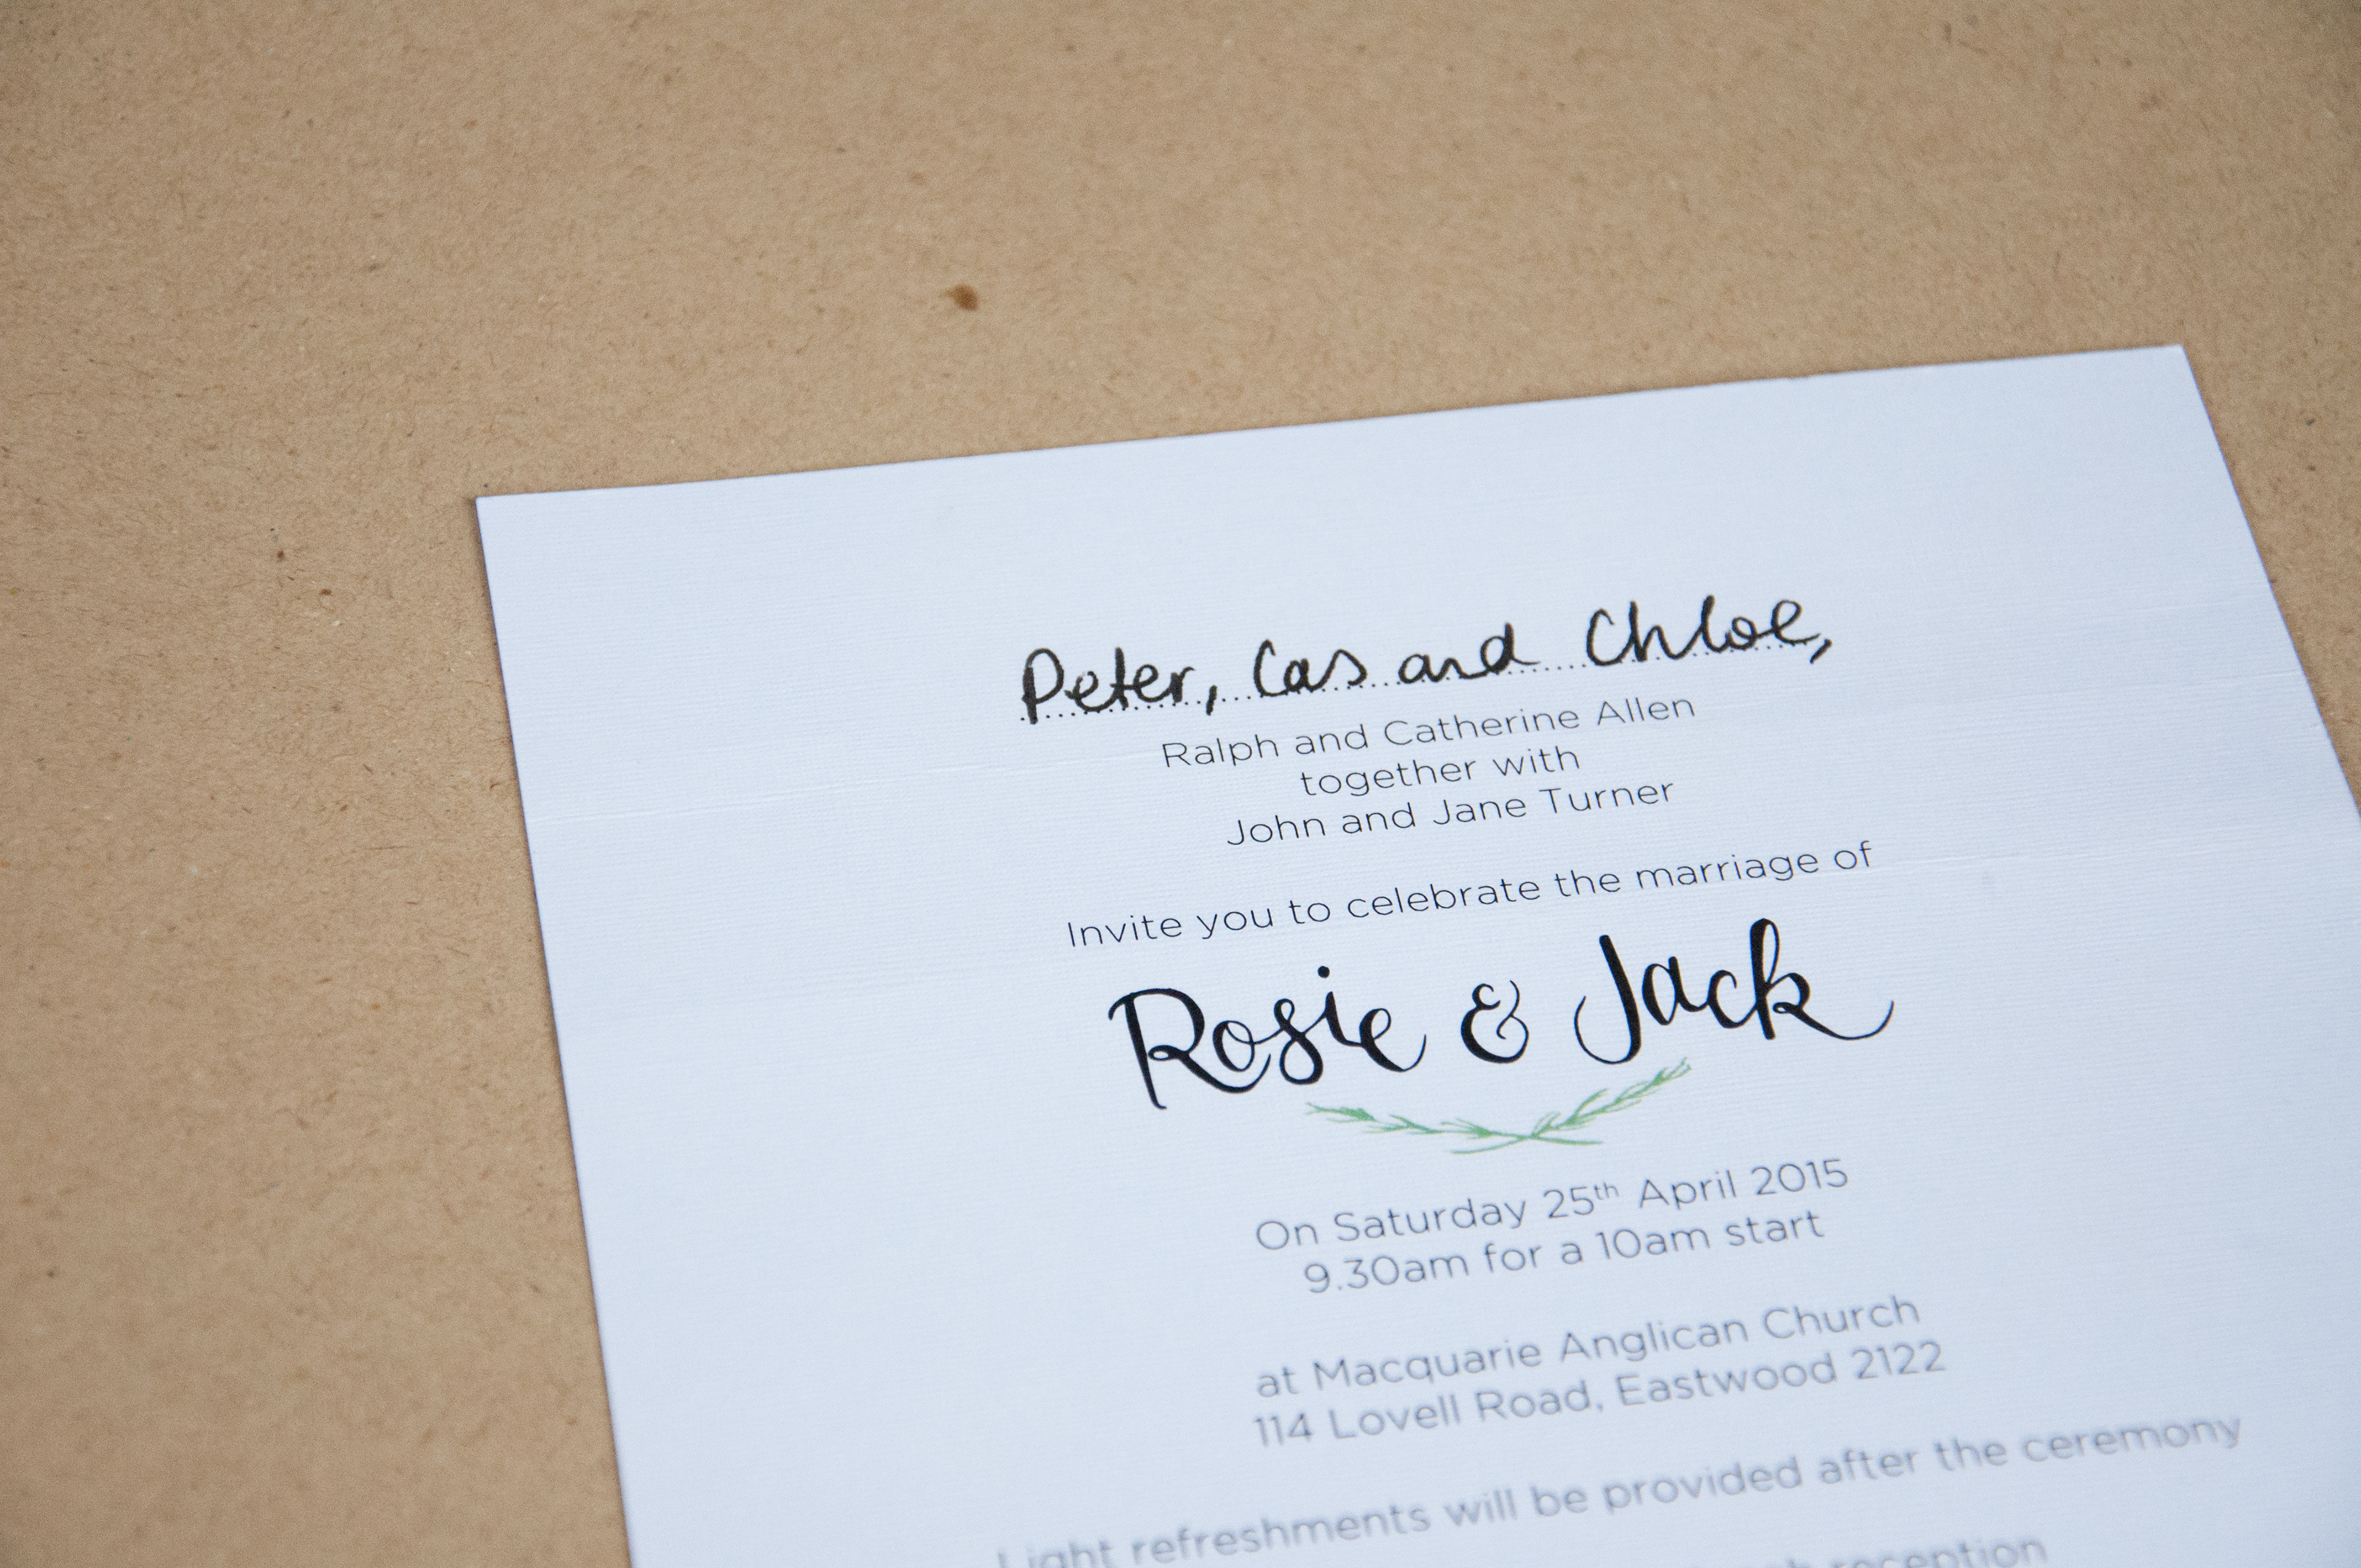 Peter, Cas and Chloe,
Ralph and Catherine Allen
together with
John and Jane Turner
Invite you to celebrate the marriage of
Rosie & Jack
On Saturday 25th April 2015
9.30am for a 10am start
at Macquarie Anglican Church
114 Lovell Road, Eastwood 2122
Light refreshments will be provided after the ceremony
reception